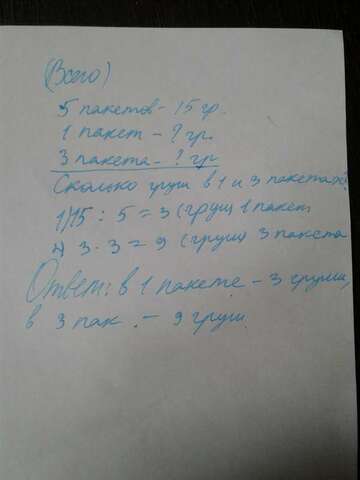 (Всего)
5 пакетов - 15 гр.
1 пакет - ? гр.
3 пакета - ? гр
Сколько груш в 1 и 3 пакетах?
1) 15 : 5 = 3 (груш) 1 пакет
3 · 3 = 9 (груш) 3 пакета
Ответ: в 1 пакете - 3 груши,
в 3 пак. - 9 груш.